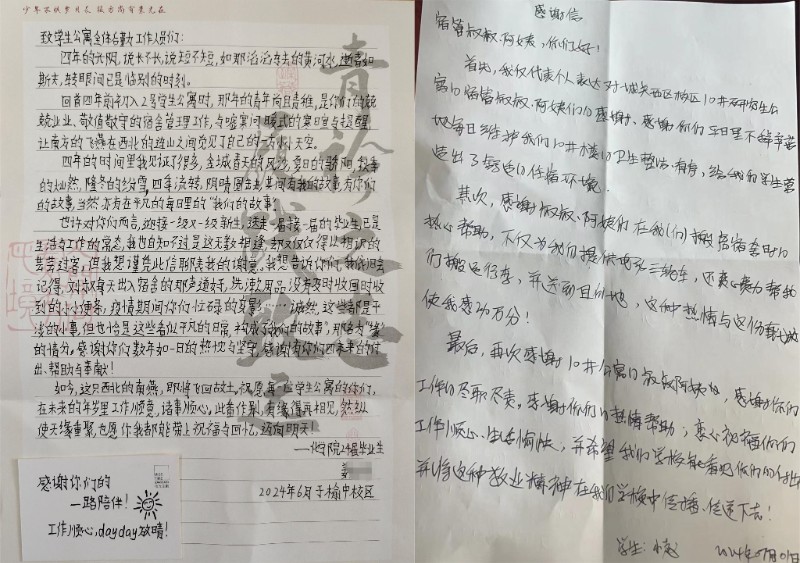 少年不惧岁月长 彼方尚有荣光在
致学生公寓全体后勤工作人员们:
四年的光阴,说长不长,说短不短,如那滔滔奔去的黄河水,逝者如
斯夫,转眼间已是临别的时刻。
回首四年前初入2号学生公寓时,那年的青年尚且青稚,是你们的兢
兢业业、敬值敬守的宿舍管理工作,与嘘寒问暖式的寒暄与提醒,
让南方的飞燕在西北的雄山之间觅见了自己的一方小天空。
四年的时间里我见证了很多,金城春天的风沙,夏日的骄阳,秋季
的灿然,隆冬的纷雪,四年流转,阴晴圆缺,其间有我的故事,有你们
的故事,当然,亦有在平凡的每日里的“我们的故事”。
也许对你们而言,迎接一级又一级新生,送走一届接一届的毕业生,已是
生活与工作的常态,我也自知不过是这无数相逢却又仅仅得以相识的
芸芸过客,但我想谨凭此信聊表我的谢意。我想告诉你们,我依旧会
记得,刘叔每天出入宿舍的那声道好,洗漱用品没有及时收回时收
到的小小便条,疫情期间你们忙碌的身影……诚然,这些都是平
淡的小事,但也恰是这些看似平凡的日常,构成了我们的“故事”,那名为“缘”
的情分。感谢你们数年如一日的热忱与坚守,感谢有你们四年来的付
出、帮助与奉献!
如今,这只西北的南燕,即将飞回故土,祝愿每一位学生公寓的你们,
在未来的年岁里工作顺意,诸事顺心,此番作别,有缘得再相见,然纵
使天缘重聚,也愿你我都能带上祝福与回忆,迈向明天!
24届毕业生
姜
2024年6月于榆中校区
感谢你们的
一路陪伴!
工作顺心,dayday放晴!
感谢信
宿管叔叔、阿姨,你们好!
首先,我仅代表个人表达对城关西区校区10#研究生公
寓的宿管叔叔、阿姨们的感谢、感谢你们平日里不辞辛苦
地每日维护我们10#楼的卫生整洁有序,给我们学生营
造出了舒适的住宿环境。
其次,感谢叔叔、阿姨们在我们搬宿舍李时的
热心帮助,不仅为我们提供电动三轮车,还衷心卖力帮我
们搬运行李,并送到目的地,这种热情与这份舞动地
使我感动万分!
最后,再次感谢10#公寓的叔叔阿姨们,感谢你们
工作的尽职尽责,感谢你们的热情帮助;衷心祝福你们
工作顺心、生活愉快,并希望我们学校能看见你们的付出
并将这种敬业精神在我们学校中传播、传递下去!
学生:
2024年07月01日